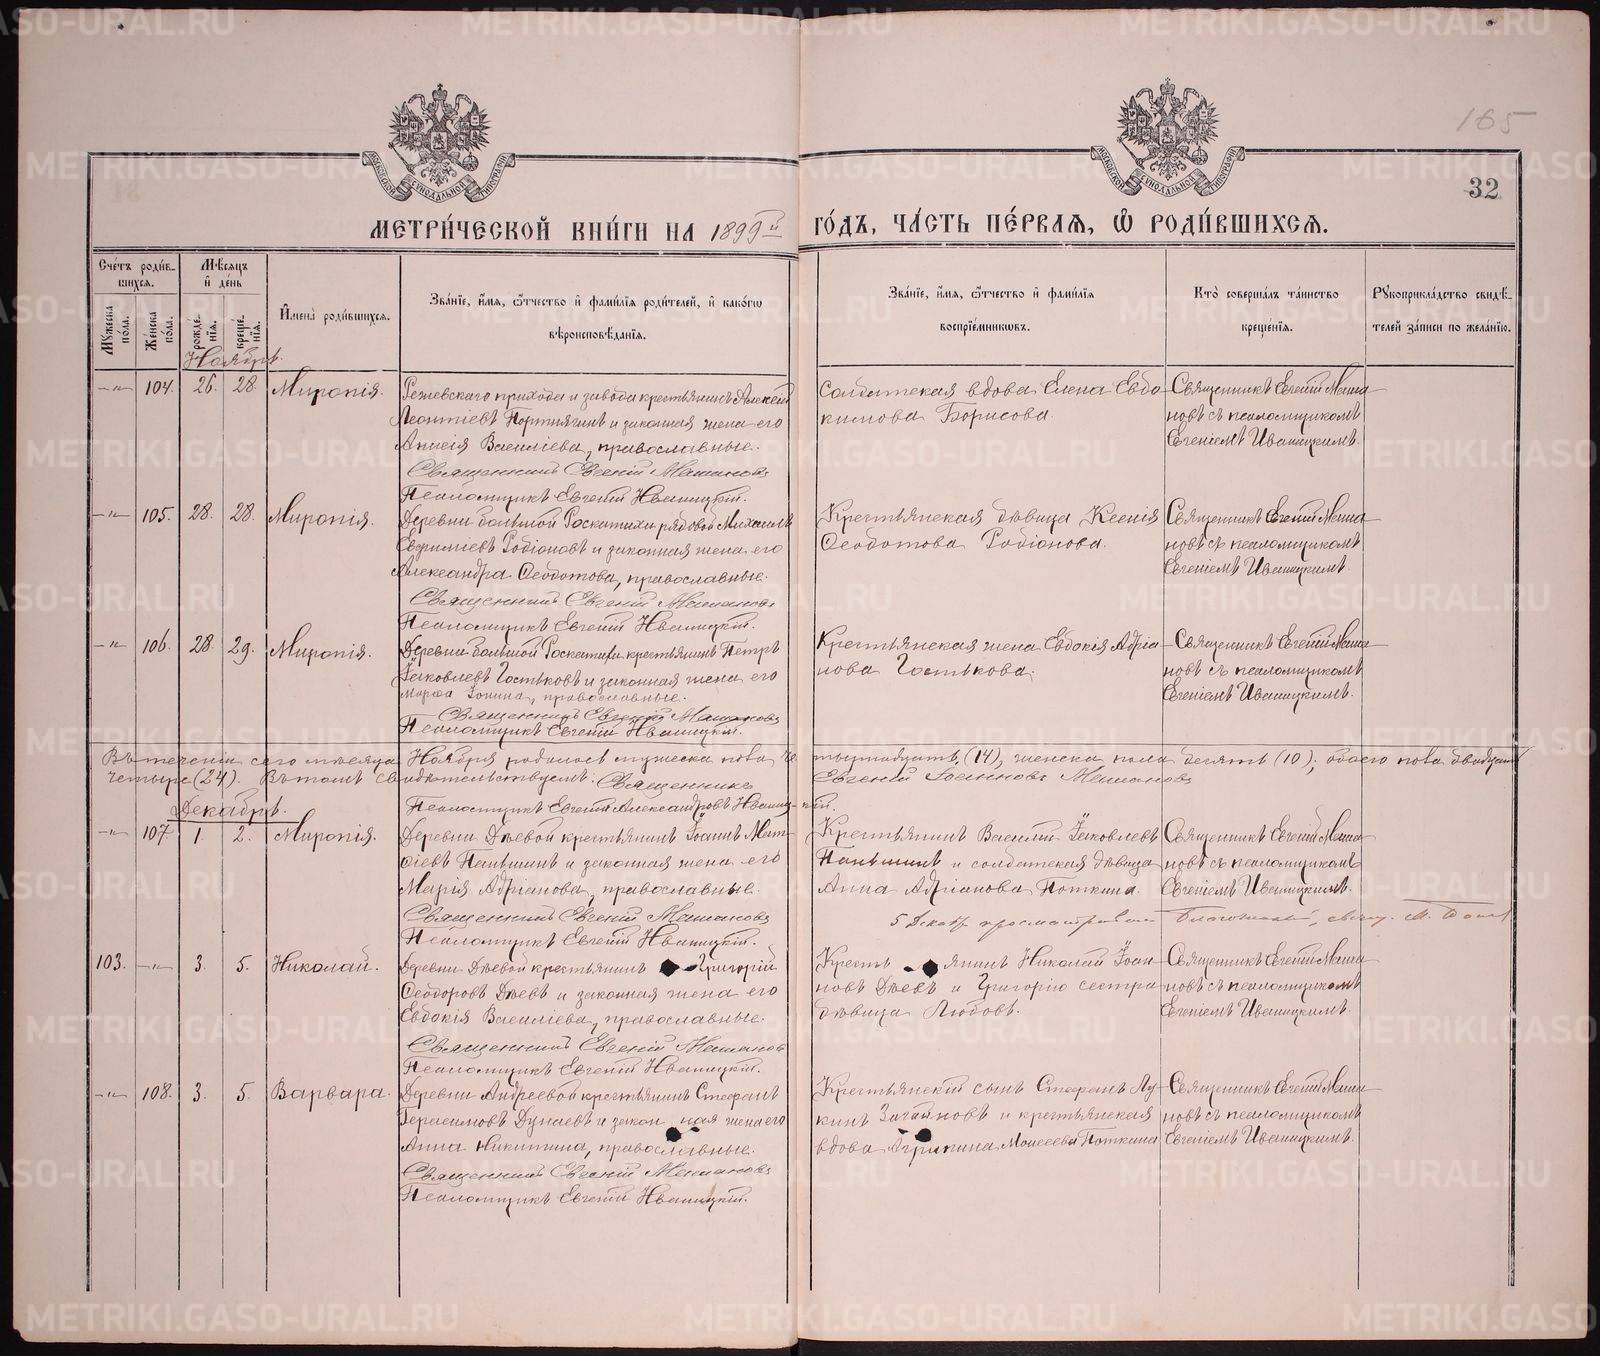 МЕТРИ́ЧЕСКОЙ КНИ́ГИ НА 1899й ГО́ДЪ, ЧА́СТЬ ПЕ́РВАѦ, Ѡ РОДИ́ВШИХСѦ.
165
32
Сче́тъ роди́в-
шихсѧ.
Мѣ́сѧцъ
и де́нь
Мꙋжеска по́ла.
Же́нска по́ла.
рожде́нїѧ.
креще́нїѧ.
Имена̀ роди́вшихсѧ.
Зва́нїе, и́мѧ, ѻ҆́тчество и фамѝлїѧ роди́телей, и како́гѡ
вѣроисповѣ́данїѧ.
Зва́нїе, и́мѧ, ѻ҆́тчество и фамѝлїѧ
воспрїе́мникѡвъ.
Кто̀ соверша́лъ та́инство
креще́нїѧ.
Рꙋкоприкла́дство свидѣ́-
телей за́писи по жела́нїю.
Ноябрь.
—"— 104. 26. 28. Миропія.
Режевскаго прихода и завода крестьянинъ Алексѣй
Леонтіевъ Портнягинъ и законная жена его
Анисія Василіева, православные.
Священникъ Евгеній Машановъ
Псаломщикъ Евгеній Иваницкій.
Солдатская вдова Елена Евдо-
кимова Борисова.
Священникъ Евгеній Маша-
новъ съ псаломщикомъ
Евгеніемъ Иваницкимъ.
—"— 105. 28. 28. Миропія.
Деревни большой Роскатихи рядовой Михаилъ
Евфиміевъ Родіоновъ и законная жена его
Александра Ѳеодотова, православные.
Священникъ Евгеній Машановъ
Псаломщикъ Евгеній Иваницкій.
Крестьянская дѣвица Ксенія
Ѳеодотова Родіонова.
Священникъ Евгеній Маша-
новъ съ псаломщикомъ
Евгеніемъ Иваницкимъ.
—"— 106. 28. 29. Миропія.
Деревни большой Роскатихи крестьянинъ Петръ
Іаковлевъ Гостьковъ и законная жена его
Марѳа Іонина, православные.
Священникъ Евгеній Машановъ
Псаломщикъ Евгеній Иваницкій.
Крестьянская жена Евдокія Адріа-
нова Гостькова.
Священникъ Евгеній Маша-
новъ съ псаломщикомъ
Евгеніемъ Иваницкимъ.
Въ теченіи сего мѣсяца Ноября родилось мужеска пола че-
тырнадцать (14), женска пола десять (10), обоего пола двадцать
четыре (24). Въ томъ свидѣтельствуемъ. Священникъ
Евгеній Іоанновъ Машановъ
Псаломщикъ Евгеній Александровъ Иваниц-кій.
Декабрь.
—"— 107 1 2. Миропія.
Деревни Дѣевой крестьянинъ Іоаннъ Мат-
ѳіевъ Паньшинъ и законная жена его
Марія Адріанова, православные.
Священникъ Евгеній Машановъ
Псаломщикъ Евгеній Иваницкій.
Крестьянинъ Василій Іаковлевъ
Паньшинъ и солдатская дѣвица
Анна Адріанова Поткина.
Священникъ Евгеній Маша-
новъ съ псаломщикомъ
Евгеніемъ Иваницкимъ.
5 Декабр. просматривалъ Благочинный, свящ.
103. —"— 3. 5. Николай.
Деревни Дѣевой крестьянинъ Григорій
Ѳеодоровъ Дѣевъ и законная жена его
Евдокія Василіева, православные.
Священникъ Евгеній Машановъ
Псаломщикъ Евгеній Иваницкій.
Кресть янинъ Николай Іоан-
новъ Дѣевъ и Григорію сестра
дѣвица Любовь.
Священникъ Евгеній Маша-
новъ съ псаломщикомъ
Евгеніемъ Иваницкимъ.
—"— 108. 3. 5. Варвара.
Деревни Андреевой крестьянинъ Стефанъ
Герасимовъ Дунаевъ и закон ная жена его
Анна Никитина, православные.
Священникъ Евгеній Машановъ
Псаломщикъ Евгеній Иваницкій.
Крестьянскій сынъ Стефанъ Лу-
кинъ и крестьянская
вдова Агрипина Моисеева Поткина
Священникъ Евгеній Маша-
новъ съ псаломщикомъ
Евгеніемъ Иваницкимъ.
METRIKI.GASO-URAL.RU